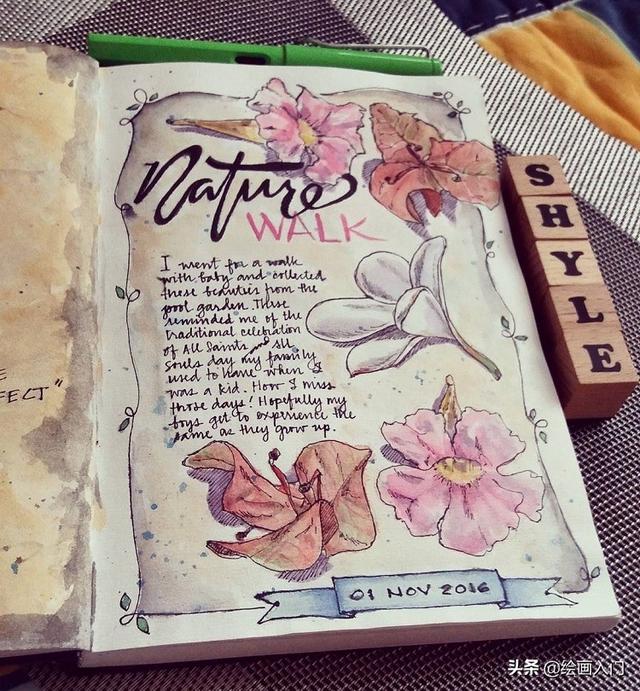 E
FECT"
Nature
WALK
I went for a walk
with baby and collected
these beauties from the
pool garden. These
reminded me of the
traditional celebration
of All Saints and All
Souls day my family
used to have when I
was a kid. How I miss
those days! Hopefully my
boys get to experience the
same as they grow up.
01 NOV 2016
S
H
Y
L
E
头条 @绘画入门